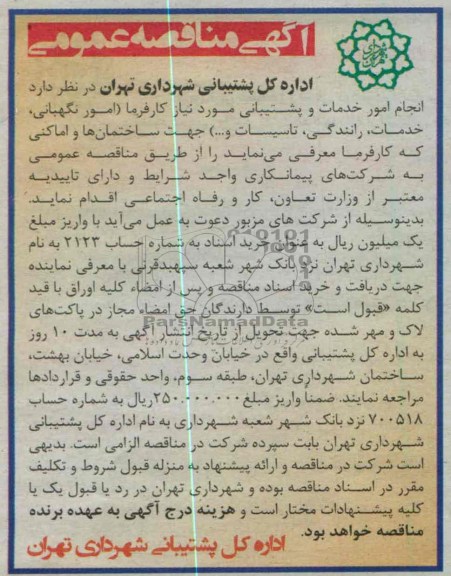 آگهی مناقصه عمومی
اداره کل پشتیبانی شهرداری تهران در نظر دارد
انجام امور خدمات و پشتیبانی مورد نیاز کارفرما (امور نگهبانی،
خدمات، رانندگی، تاسیسات و...) جهت ساختمان‌ها و اماکنی
که کارفرما معرفی می‌نماید را از طریق مناقصه عمومی
به شرکت‌های پیمانکاری واجد شرایط و دارای تاییدیه
معتبر از وزارت تعاون، کار و رفاه اجتماعی اقدام نماید.
بدینوسیله از شرکت های مزبور دعوت به عمل می‌آید با واریز مبلغ
یک میلیون ریال به عنوان خرید اسناد به شماره حساب ۲۱۲۳ به نام
شهرداری تهران نزد بانک شهر شعبه سپهبدقرنی با معرفی نماینده
جهت دریافت و خرید اسناد مناقصه و پس از امضاء کلیه اوراق با قید
کلمه «قبول است» توسط دارندگان حق امضاء مجاز در پاکت‌های
ParsNamadData
لاک و مهر شده جهت تحویل از تاریخ انتشار آگهی به مدت ۱۰ روز
به اداره کل پشتیبانی واقع در خیابان وحدت اسلامی، خیابان بهشت،
ساختمان شهرداری تهران، طبقه سوم، واحد حقوقی و قراردادها
مراجعه نمایند. ضمناً واریز مبلغ ۲۵۰.۰۰۰.۰۰۰ریال به شماره حساب
۷۰۰۵۱۸ نزد بانک شهر شعبه شهرداری به نام اداره کل پشتیبانی
شهرداری تهران بابت سپرده شرکت در مناقصه الزامی است. بدیهی
است شرکت در مناقصه و ارائه پیشنهاد به منزله قبول شروط و تکلیف
مقرر در اسناد مناقصه بوده و شهرداری تهران در رد یا قبول یک یا
کلیه پیشنهادات مختار است و هزینه درج آگهی به عهده برنده
مناقصه خواهد بود.
اداره کل پشتیبانی شهرداری تهران